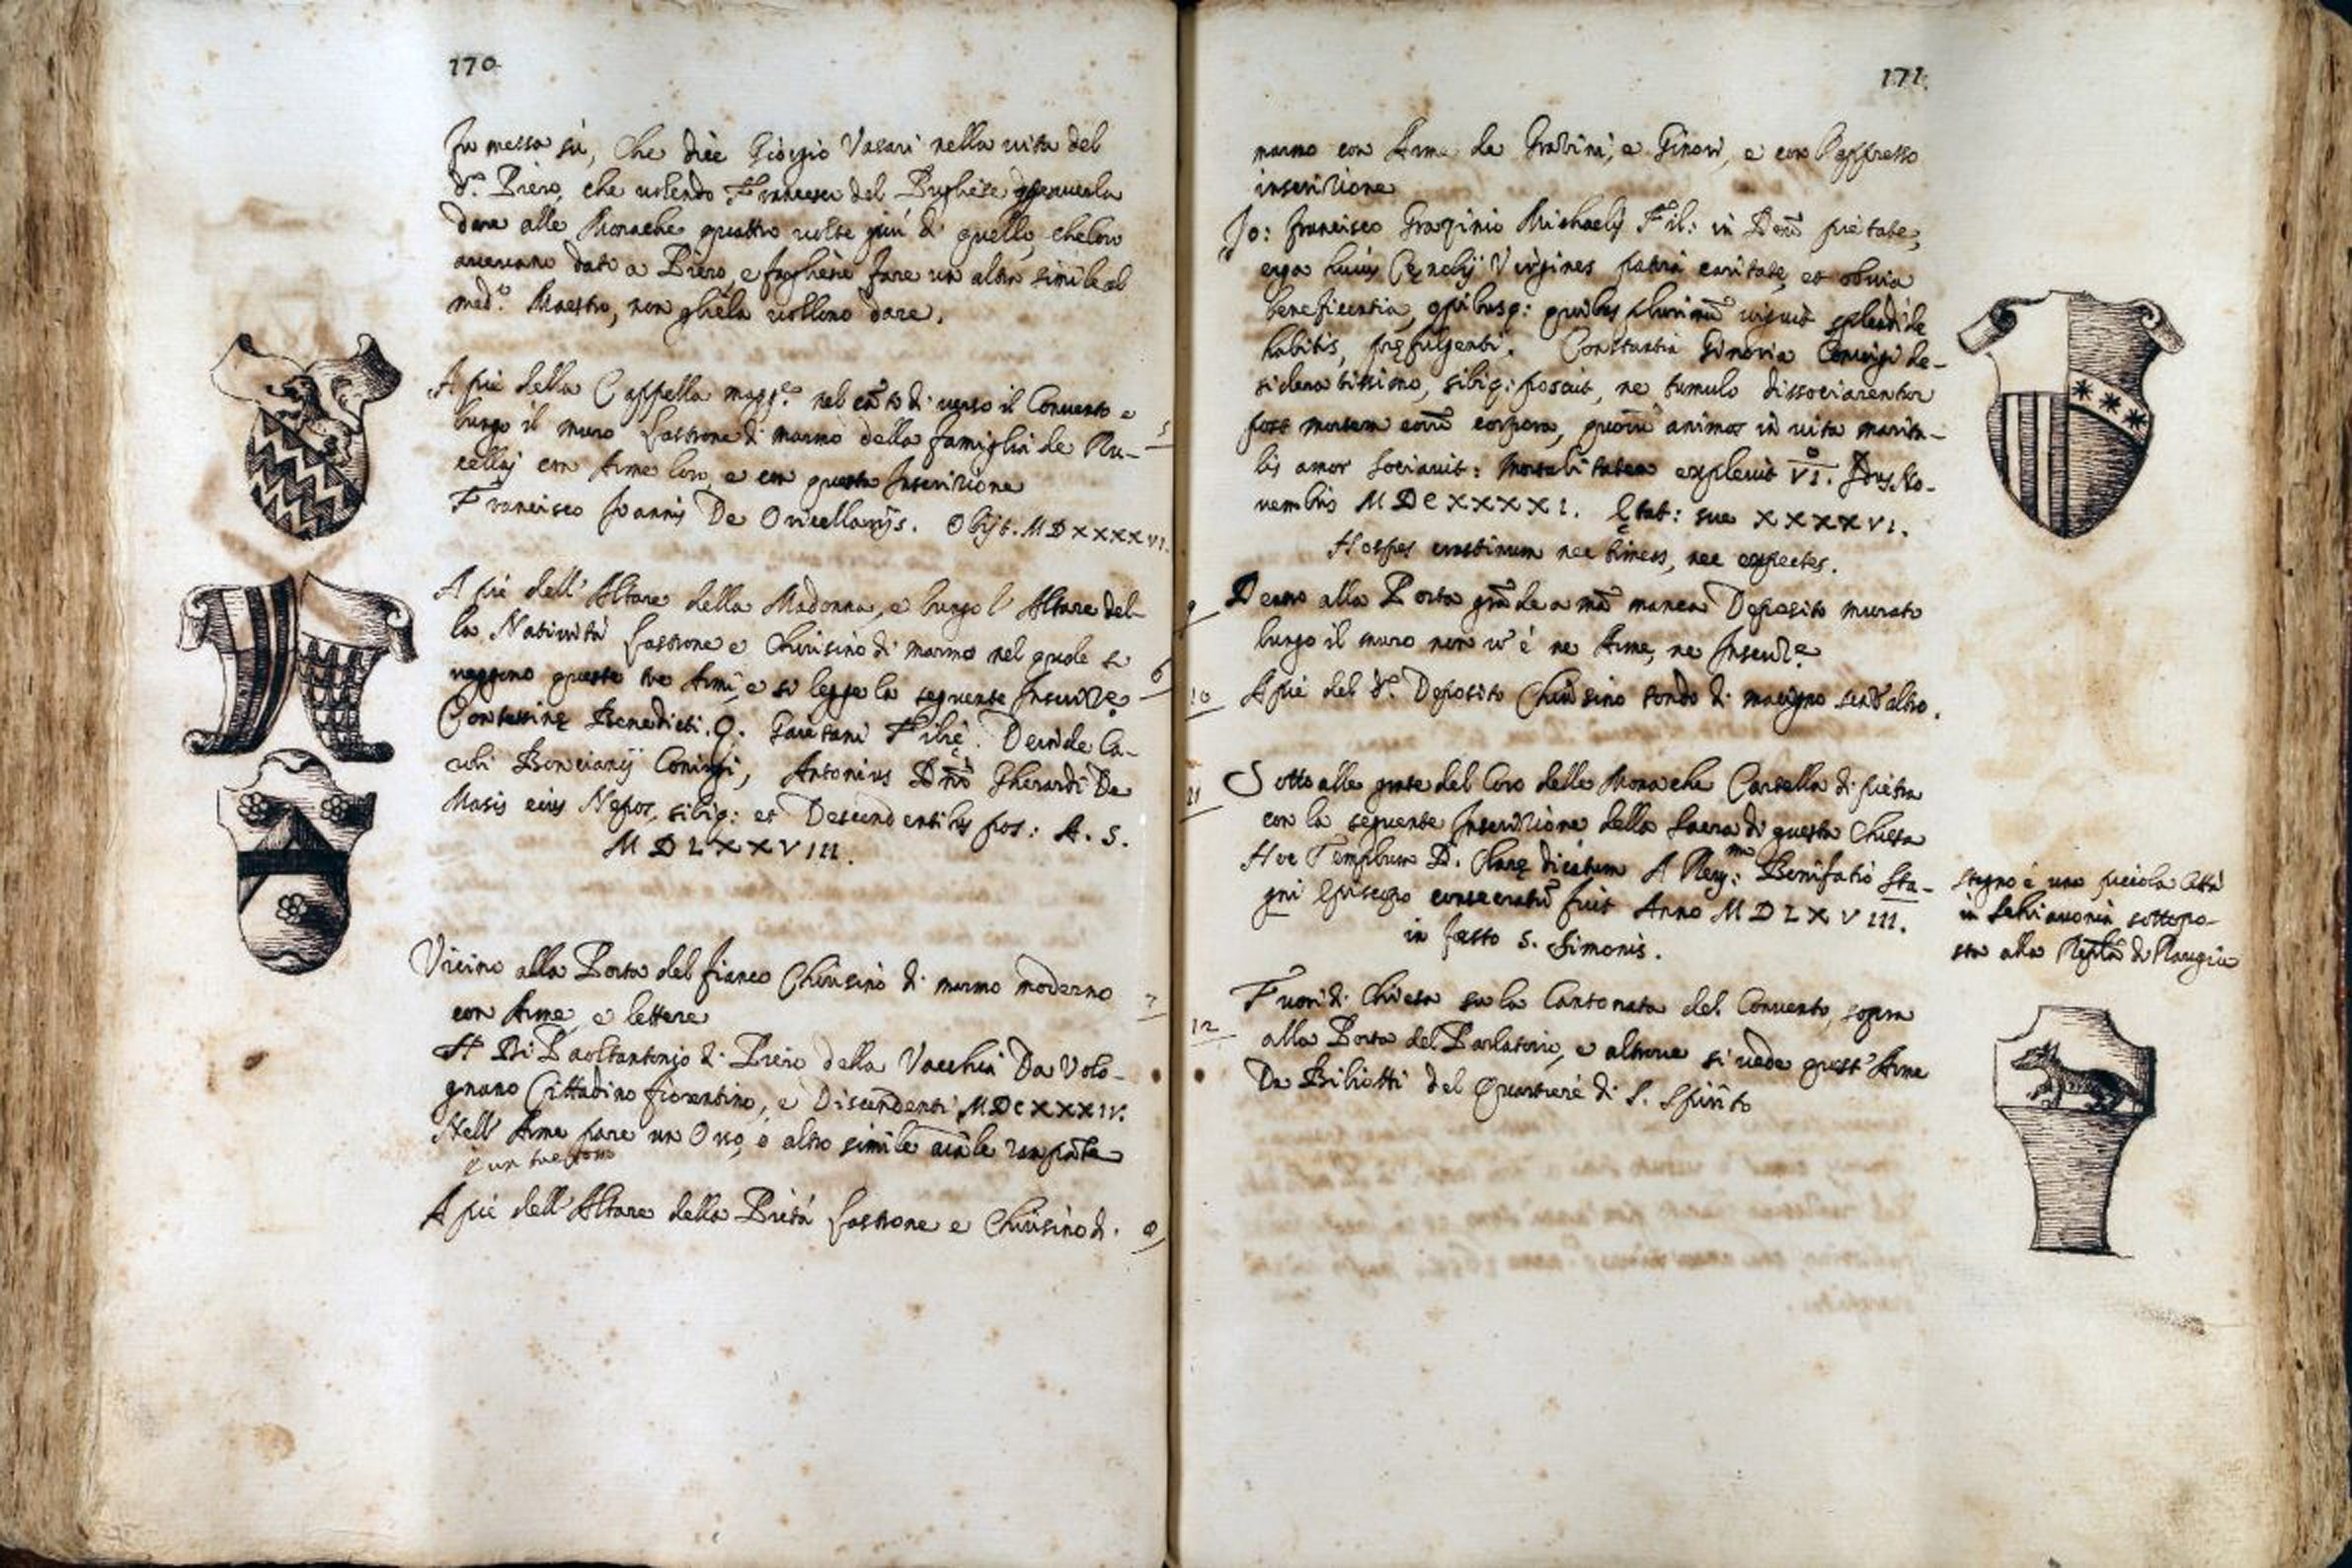 170
In messa sù, che dice Giorgio Vasari nella vita del
d.º Piero, che volendo Francesco del Pugliese
dare alle Monache quattro volte più di quello, che loro
avevano dato a Piero, e fargliene fare un altro simile al
med.º Maestro, non gliela vollono dare.
A piè della Cappella magg.re nel cãto di verso il Convento e
lungo il muro Lastrone di marmo della famiglia de Ru-
cellaj con Arme loro, e con questa Inscrizione
5
Francisco Joannis De Oricellarijs. Obijt. MDXXXXVI.
A piè dell'Altare della Madonna, e lungo l'Altare del-
la Natività Lastrone e Chiusino di marmo nel quale si
veggono queste tre Armi, e si legge la seguente Inscriz.e
6
Contessinę Benedicti. Q. Gaietani Filię. Deinde Ca-
roli Boncianij Coniugi, Antonius Dñi Gherardi De
Masis eius Nepos, sibiq: et Descendentibus pos: A. S.
MDLXXVIII.
Vicino alla Porta del fianco Chiusino di marmo moderno
con Arme, e lettere
7
H Di Paolantonio di Piero della Vacchia Da Volo-
gnano Cittadino fiorentino, e Discendenti MDCXXXIV.
Nell'Arme pare un Orso, o altro simile aïale rampãte
A piè dell'Altare della Pietà Lastrone e Chiusino di
8
171.
marmo con Arme de Grazini, e Ginori, e con l'appresso
inscrizione
Jo: Francisco Grazinio Michaelis Fil: in Deũ pietate,
erga huius Cęnobij Virgines patria caritate, et obvia
beneficentia, opibusq: quibus plurimũ viguit splendide
habitis, pręfulgenti. Constantia Ginoria Coniugi de-
sideratissimo, sibiq: posuit, ne tumulo dissociarentur
post mortem eorũ corpora, quorũ animos in vita marita-
lis amor sociavit: Mortalitatem explevit VI. Idus No-
vembris MDCXXXXI. Ętat: suę XXXXVI.
Hospes crastinum nec timeas, nec expectes.
9
Dentro alla Porta grãde a mã manca Deposito murato
lungo il muro non v'è ne Arme, ne Inscriz.e
10
A piè del d.º Deposito Chiusino tondo di macigno senz'altro.
11
Sotto alle grate del Coro delle Monache Cartella di pietra
con la seguente Inscrizione della Sacra di questa Chiesa
Hoc Templum D. Clarę dicatum A Rev:mo Bonifatio Sta-
gni Episcopo consecratũ fuit Anno MDLXVIII.
in festo S. Simonis.
Stagno è una picciola Città
in Schiavonia sottopo-
sta alla Repub.ca di Raugia
12
Fuori di Chiesa su la Cantonata del Convento, sopra
alla Porta del Parlatorio, e altrove si vede quest'Arme
De Biliotti del Quartiere di S. Spirito